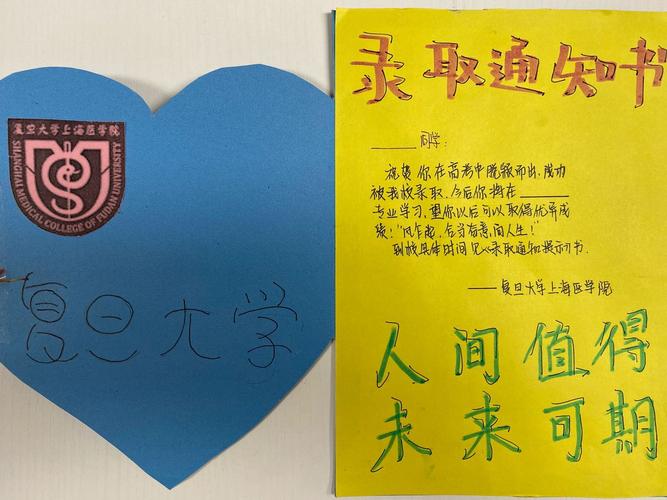 复旦大学上海医学院
SHANGHAI MEDICAL COLLEGE OF FUDAN UNIVERSITY
复旦大学
录取通知书
______同学:
祝贺你在高考中脱颖而出,成功
被我校录取.今后你将在______
专业学习,望你以后可以取得优异成
绩!"风乍起,合当奋意向人生!"
到校具体时间见《录取通知提示》书.
——复旦大学上海医学院
人间值得
未来可期